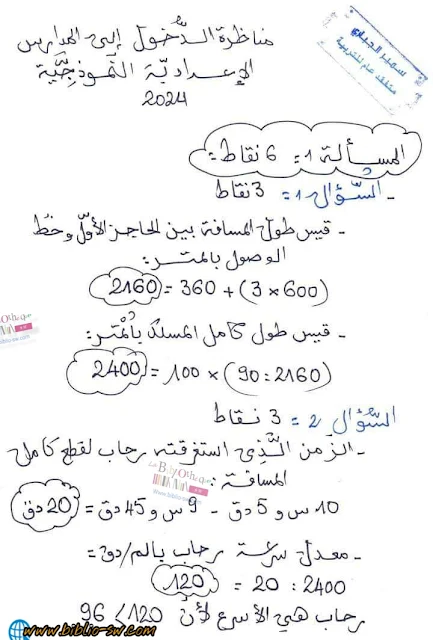 مناظرة الدّخول إلى المدارس
الإعداديّة النّموذجيّة
2024
سمير الجبالي
متفقد عام للتربية
المسألة 1 = 6 نقاط:
- السّؤال 1 = 3 نقاط
- قيس طول المسافة بين الحاجز الأوّل وخطّ
الوصول بالمتر:
(600 × 3) + 360 = 2160
- قيس طول كامل المسلك بالمتر:
(2160 : 90) × 100 = 2400
السّؤال 2 = 3 نقاط
- الزّمن الّذي استغرقته رحاب لقطع كامل
المسافة:
10 س و 5 دق - 9 س و 45 دق = 20 دق
- معدل سرعة رحاب بالم/دق =
2400 : 20 = 120
رحاب هي الأسرع لأنّ 120 > 96
www.biblio-sw.com